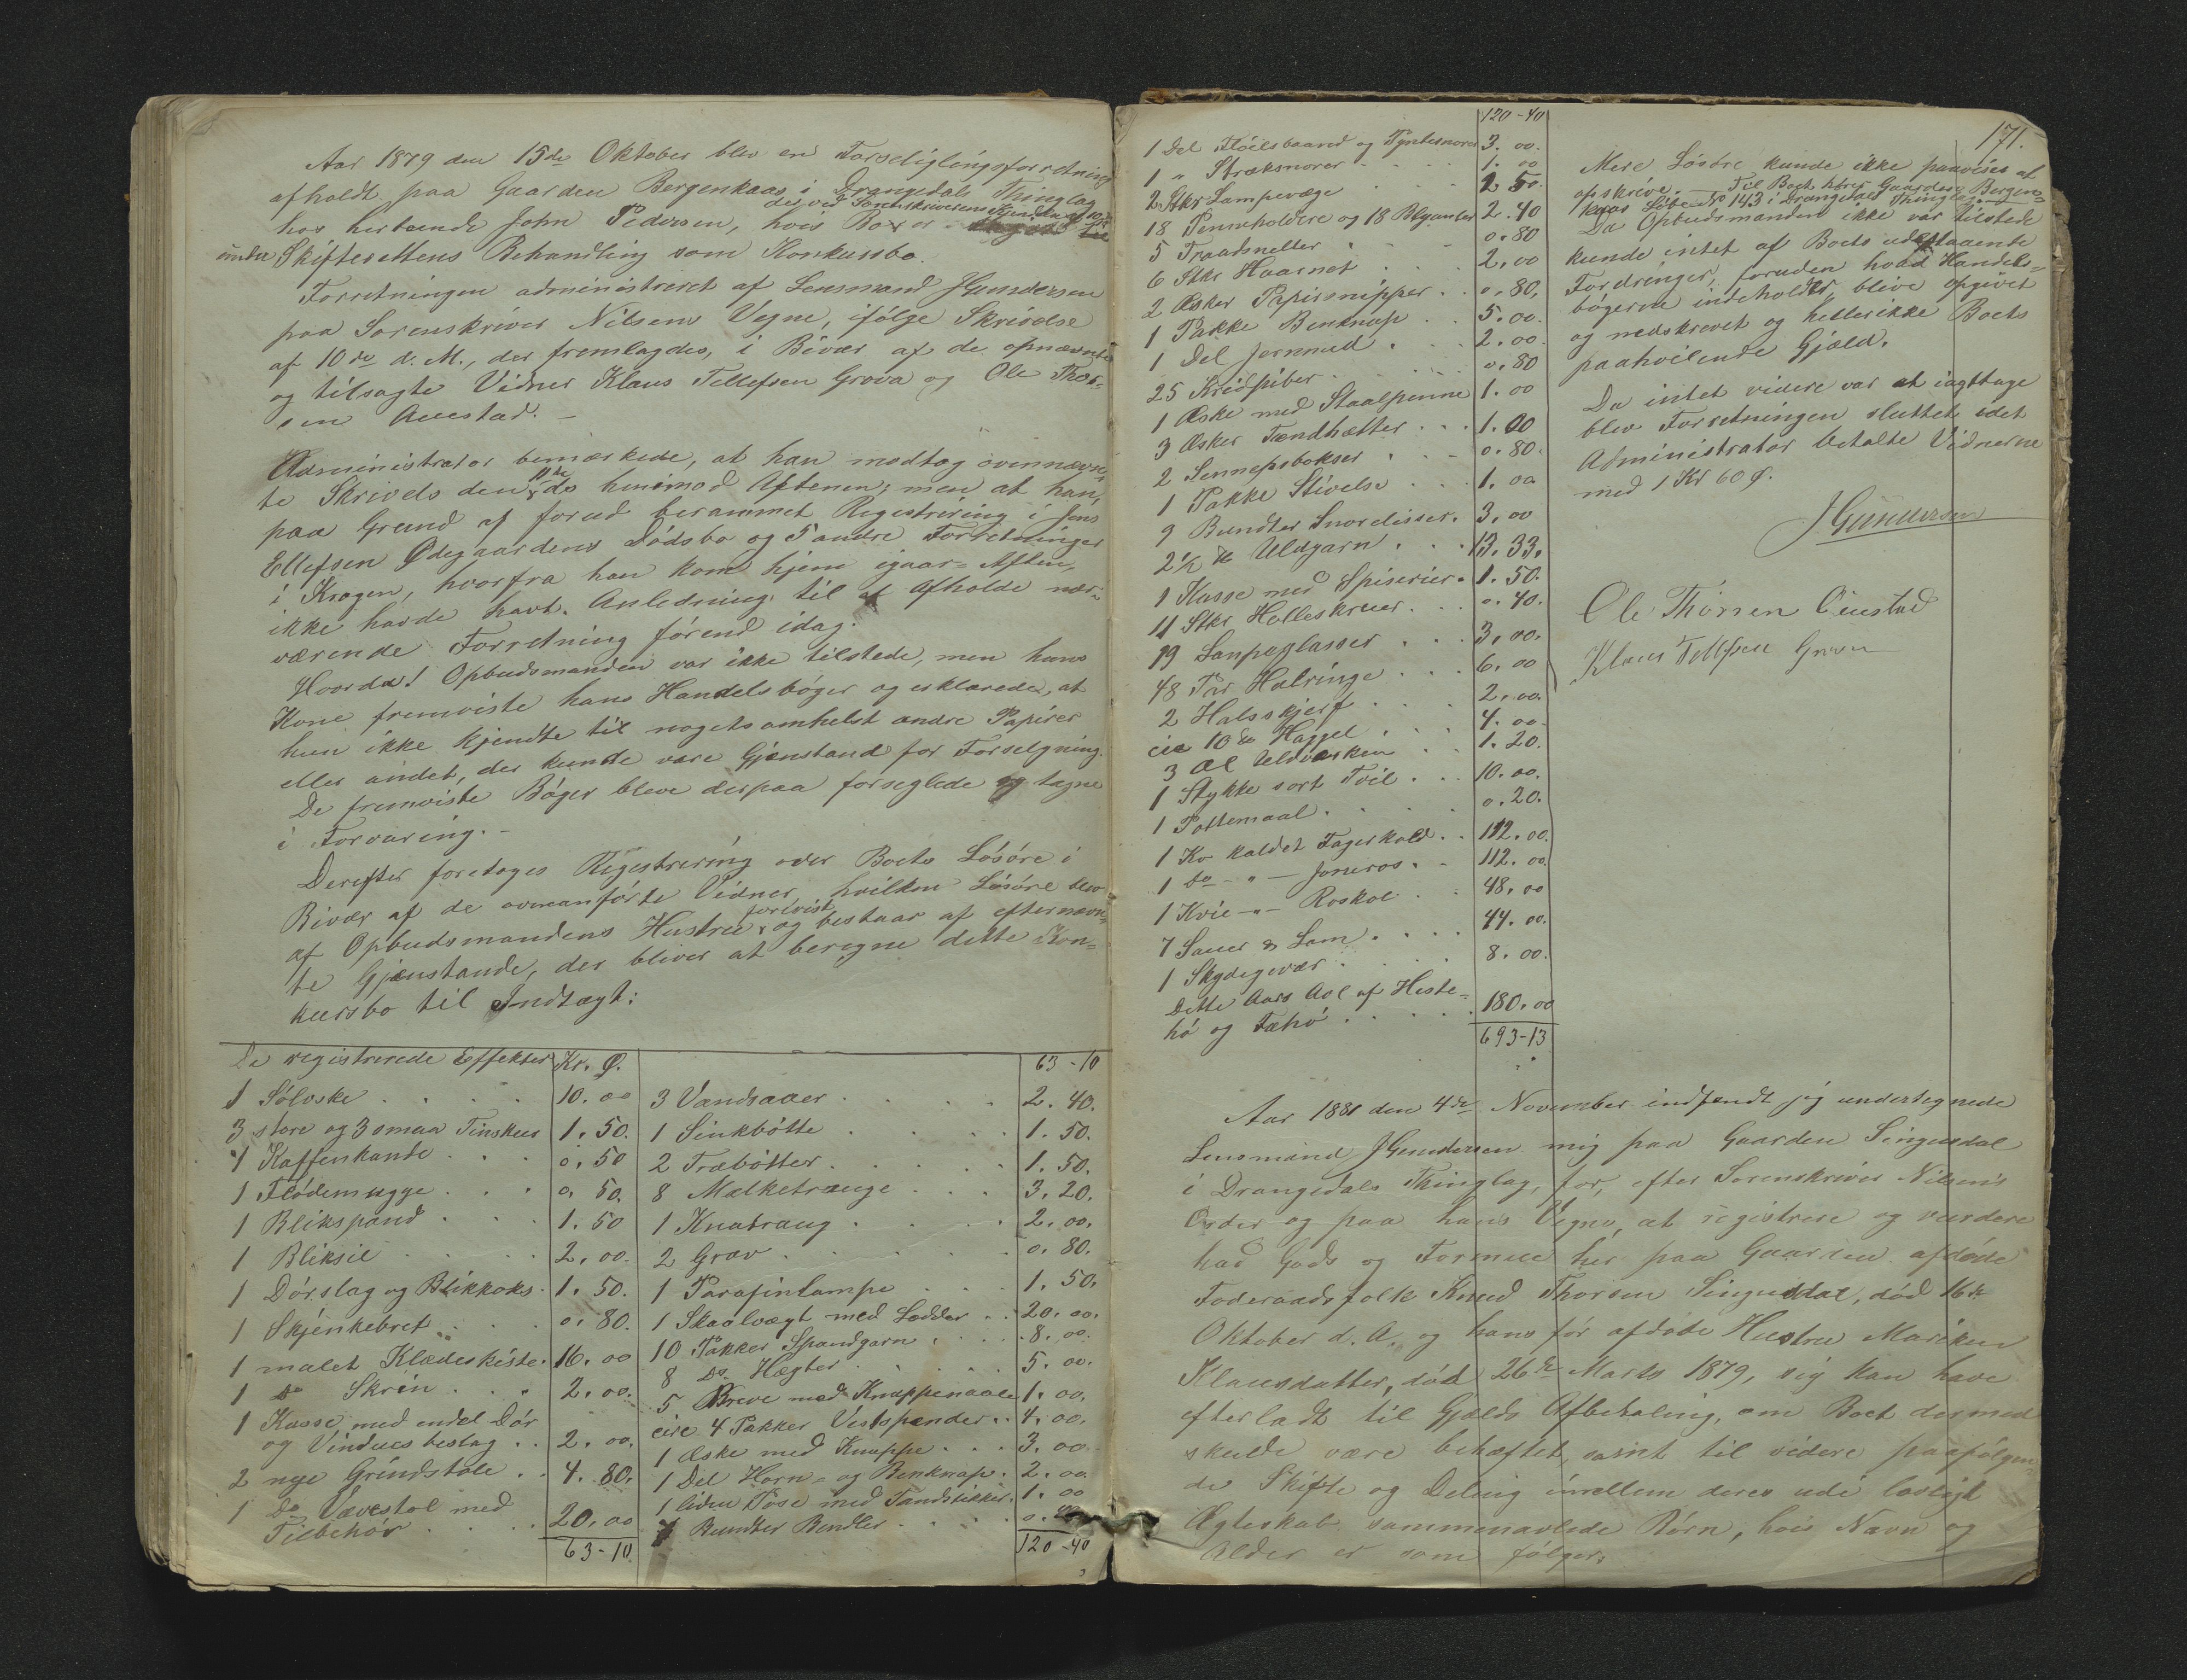 Aar 1879 den 15de Oktober blev en Forseiglingsforretning
afholdt paa Gaarden Bergenkaas i Drangedals Thinglag
der ved Sorenskriverens Kjendelse af 10de
hos herboende John Pedersen, hvis Bo er
under Skifterettens Behandling som Konkursbo.
Forretningen administreret af Lensmand JGundersen
paa Sorenskriver Nilsens Vegne, ifølge Skrivelse
af 10de d. M., der fremlagdes, i Bivær af de opnævnte
og tilsagte Vidner Klaus Tellefsen Grova og Ole Thor-
sen Auestad. -
Administrator bemærkede, at han modtog ovennævn-
te Skrivels den 11te ds henimod Aftenen; men at han,
paa Grund af forud berammet Registrering i Jens
Ellefsen Ødegaardens Dødsbo og 5 andre Forretninger
i Krogen, hvorfra han kom hjem igaar-Aften,
ikke havde havt Anledning til at afholde nær-
værende Forretning førend idag.
Hvorda! Opbudsmanden var ikke tilstede, men hans
Kone fremviste hans Handelsbøger og erklærede, at
hun ikke kjendte til nogetsomhelst andre Papirer
eller andet, der kunde være Gjenstand for Forseigling.
De fremviste Bøger bleve derpaa forseglede og tagne
i Forvaring. -
Derefter foretoges Registrering over Boets Løsøre i
Bivær af de ovenanførte Vidner, hvilken Løsøre blev
af Opbudsmandens Hustru forevist og bestaar af efternævn-
te Gjenstande, der bliver at beregne dette Kon-
kursbo til Indtægt:
De registrerede Effekter Kr. Ø.
1 Sølvske . . . . 10. 00
3 store og 3 smaa Tinskeer 1. 50.
1 Kaffenkande . . . 0. 50
1 Flødemugge . . . 0. 50.
1 Blikspand . . . 1. 50
1 Bliksie . . . . 2. 00.
1 Dørslag og Blikkoks. 1. 50.
1 Skjenkebret . . . 0. 80.
1 malet Klædeskiste. 16. 00
1 Do Skrin . . . 2. 00.
1 Kasse med endel Dør
og Vinduesbeslag . . 2. 00.
2 nye Grindstole . . 4. 80.
1 Do Vævestol med
Tilbehør . . . . 20. 00
63-10.
63-10
3 Vandsaaer . . . . 2. 40.
1 Sinkbøtte . . . . 1. 50.
2 Træbøtter . . . . 1. 50.
8 Melketrauge . . . 3. 20.
1 Knatraug . . . . 2. 00.
2 Grev . . . . . 0. 80.
1 Parafinlampe . . . 1. 50.
1 Skaalvægt med Lodder . . 20. 00.
10 Pakker Spandgarn . . . 8. 00.
8 Do. Hægter . . . . 5. 00.
5 Breve med Knappenaale 1. 00.
circ 4 Pakker Vestspænder . . 4. 00.
1 Æske med Knappe . . . 3. 00.
1 Del Horn- og Benknap. 2. 00.
1 liden Pose med Tandstikker. 1. 00
7 Bundter Bendler . . . 0. 40
120-40
120-40
1 Del Fløielsbaand og Pyntesnorer 3. 00.
1 " Stræksnorer . . . . 1. 00
2 Stkr Lampevæge . . . 2 50.
18 Penneholdere og 18 Blyanter 2. 40
5 Traadsneller . . . . 0. 80
6 Stkr Haarnet . . . 2. 00
2 Æsker Papirsnipper . . 0. 80,
1 Pakke Benknap . . 5. 00.
1 Del Jernmed . . . 2. 00.
25 Kridpiber . . . . 0. 80
1 Æske med Staalpenne 1. 00
3 Æsker Tændhætter . . . 1. 00
2 Sennepsbokser . . . 0. 80.
1 Pakke Stivelse . . . 1. 00
9 Bundter Snorelisser. 3. 00
2 1/2 ℔ Uldgarn . . . 13. 33.
1 Kasse med Spiserier. 1. 50.
11 Stkr Holleskruer . . . 0. 40.
19 Lampeglasser . . . 3. 00.
48 Par Halringe . . . 6. 00
2 Halsskjerf . . . 2. 00.
cic 10 ℔ Haggel . . . 4. 00.
3 Al Uldvæsken . . 1. 20.
1 Stykke sort Tvil . . . 10. 00.
1 Pottemaal . . . . 0. 20.
1 Ko kaldet Fagerkold . . 112. 00.
1 do - " - Joneros . . 112. 00.
1 Kvie - " - Roskol . . 48. 00
7 Sauer & Lam . . . . 44. 00.
1 Skydegevær . . . . 8. 00.
Dette Aars Avl af Heste-
hø og Fæhø . . . . . 180. 00
693-13
171.
Mere Løsøre kunde ikke paavises at
opskrive. - Til Boet hører Gaarden Bergen-
kaas Løbe No 143 i Drangedals Thinglag.
Da Opbudsmanden ikke var tilstede
kunde intet af Boets udestaaende
Fordringer, foruden hvad Handels-
bøgerne indeholder, blive opgivet
og nedskrevet og hellerikke Boets
paahvilende Gjæld.
Da intet videre var at iagttage
blev Forretningen sluttet idet
Administrator betalte Vidnerne
med 1 Kr 60 Ø.
JGundersen
Ole Thorsen Auestad
Klaus Tellefsen Grova
Aar 1881 den 4de November indfandt jeg undertegnede
Lensmand JGundersen mig paa Gaarden Singusdal
i Drangedals Thinglag, for, efter Sorenskriver Nilsen's
Order og paa hans Vegne, at registrere og vurdere
hvad Gods og Formue her paa Gaarden afdøde
Foderaadsfolk Knud Thorsen Singusdal, død 16de
Oktober d. A. og hans før afdøde Hustru Mariken
Klausdatter, død 26de Marts 1879, sig kan have
efterladt til Gjælds Afbetaling, om Boet dermed
skulde være behæftet, samt til videre paafølgen-
de Skifte og Deling imellem deres udi lovligt
Ægteskab sammenavlede Børn, hvis Navn og
Alder er som følger: